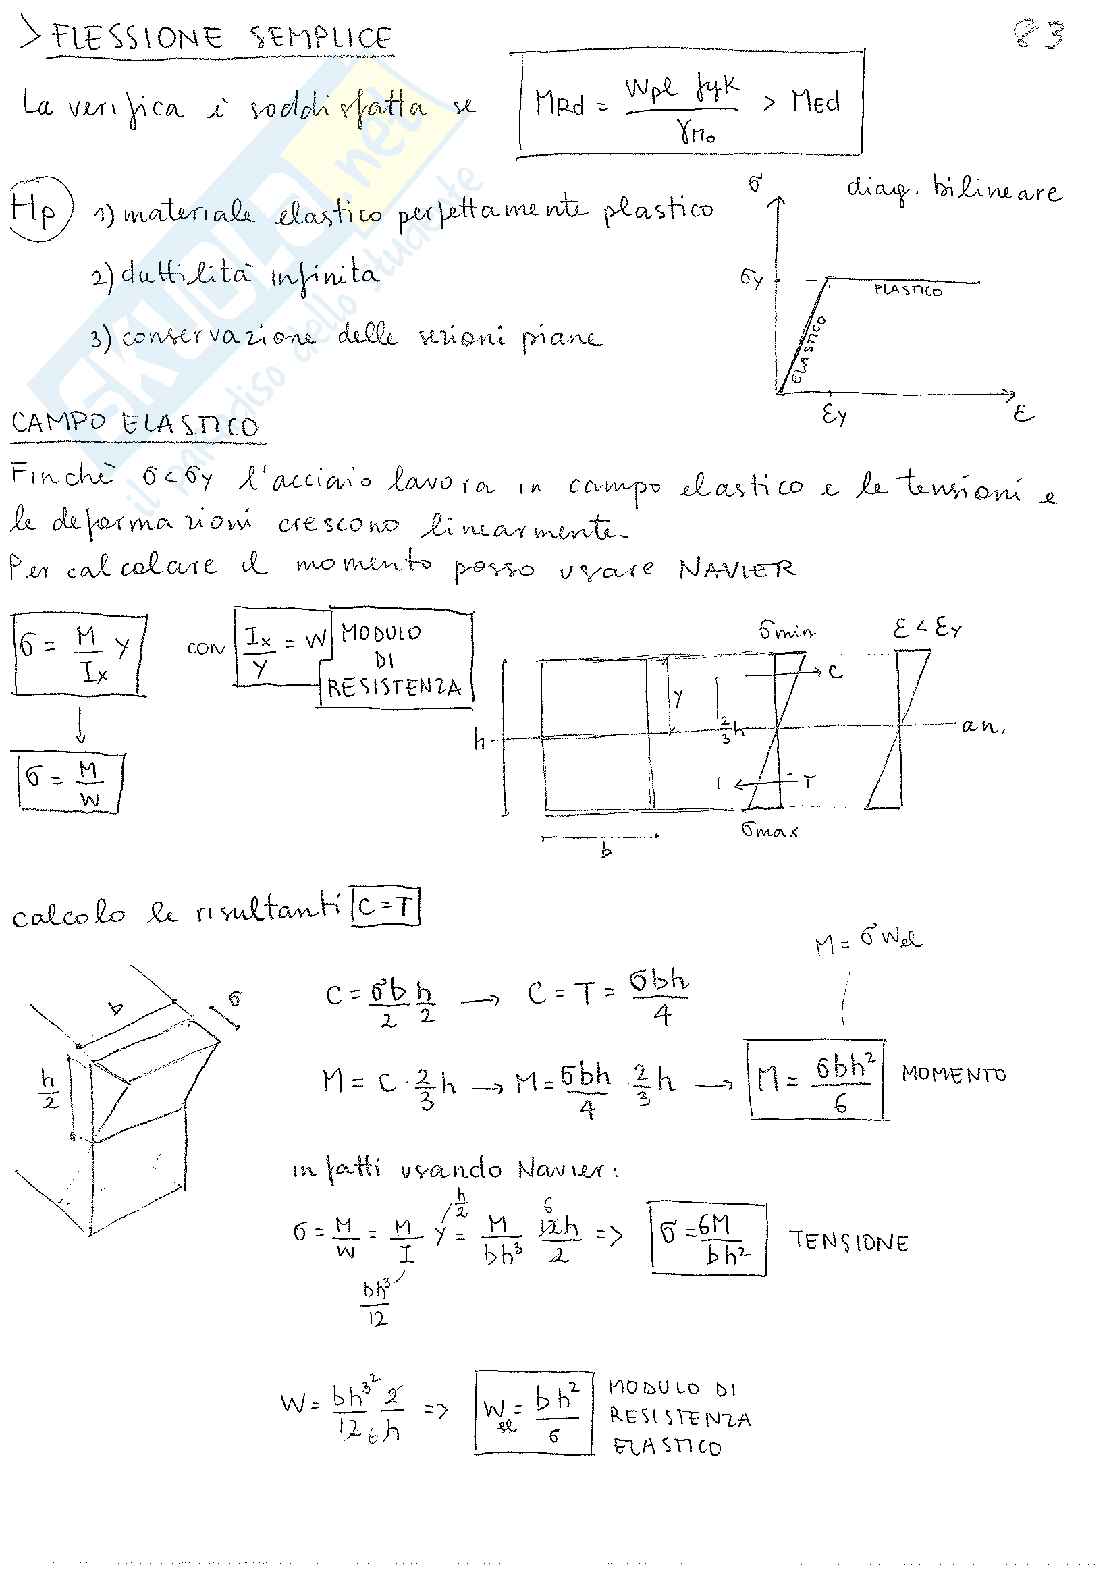 > FLESSIONE SEMPLICE
83
La verifica è soddisfatta se MRd = Wpl fyk / γM0 > MEd
Hp 1) materiale elastico perfettamente plastico
diag. bilineare
2) duttilità infinita
3) conservazione delle sezioni piane
σ
σy
PLASTICO
ELASTICO
εy
ε
SKUOLA.net
il paradiso dello studente
CAMPO ELASTICO
Finchè σ<σy l'acciaio lavora in campo elastico e le tensioni e
le deformazioni crescono linearmente.
Per calcolare il momento posso usare NAVIER
σ = M/Ix y CON Ix/y = W MODULO DI RESISTENZA
σ = M/W
σmin
ε < εy
C
y
2/3 h
h
a n.
T
σmax
b
calcolo le risultanti C=T
M = σ Wel
b
σ
h/2
C = σb/2 h/2 → C = T = σbh/4
M = C · 2/3 h → M = σbh/4 · 2/3 h → M = σbh²/6 MOMENTO
infatti usando Navier:
σ = M/W = M/I y = M/bh³ 12h/2 => σ = 6M/bh² TENSIONE
h/2
6
bh³/12
W = bh³/12 2/h => Wel = bh²/6 MODULO DI
RESISTENZA
ELASTICO